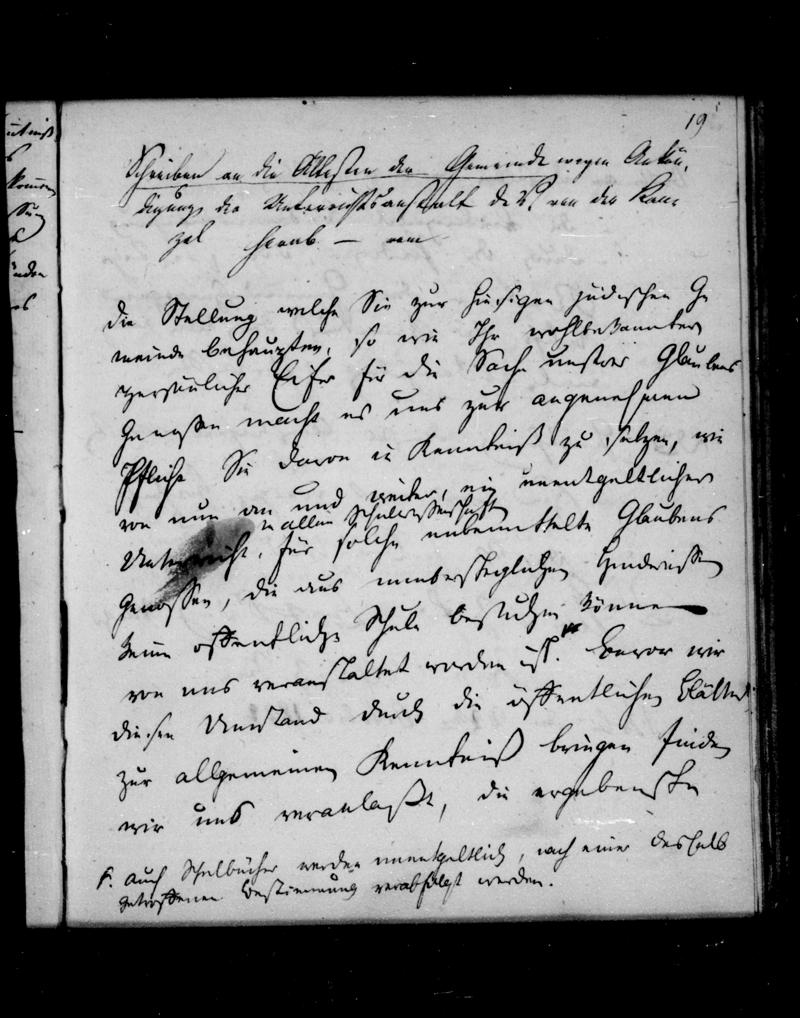 19
Schreiben an die Ältesten der Gemeinde wegen Ankün-
digung der Unterrichtsanstalt des V. von der Kan-
zel herab — vom
Die Stellung welche Sie zur hiesigen jüdischen Ge
meinde behaupten, so wie Ihr wohlbekannter
persönlicher Eifer für die Sache unsrer Glaubens
Genossen macht es uns zur angenehmen
Pflicht Sie davon in Kenntniß zu setzen, wie
von nun an und weiter, ein unentgeltlicher
in allen Schulwissenschaften
Unterricht, für solche unbemittelte Glaubens
Genossen, die aus unübersteiglichen Hindernissen
keine öffentliche Schule besuchen können
von uns veranstaltet worden ist. Bevor wir
diesen Umstand durch die öffentlichen Blätter
zur allgemeinen Kenntniß bringen finden
wir uns veranlaßt, die ergebenste
auch Schulbücher werden unentgeltlich, nach einer deshalb
getroffenen Bestimmung verabfolgt werden.